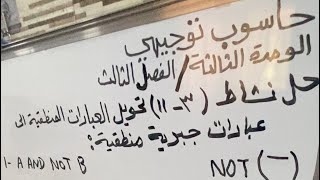 حاسوب توجيهي
الوحدة الثالثة / الفصل الثالث
حل نشاط (٣-١١) تحويل العبارات المنطقية الى
عبارات جبرية منطقية:
1- A AND NOT B
NOT (—)